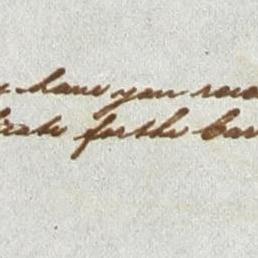 have you rece
icate for the Car